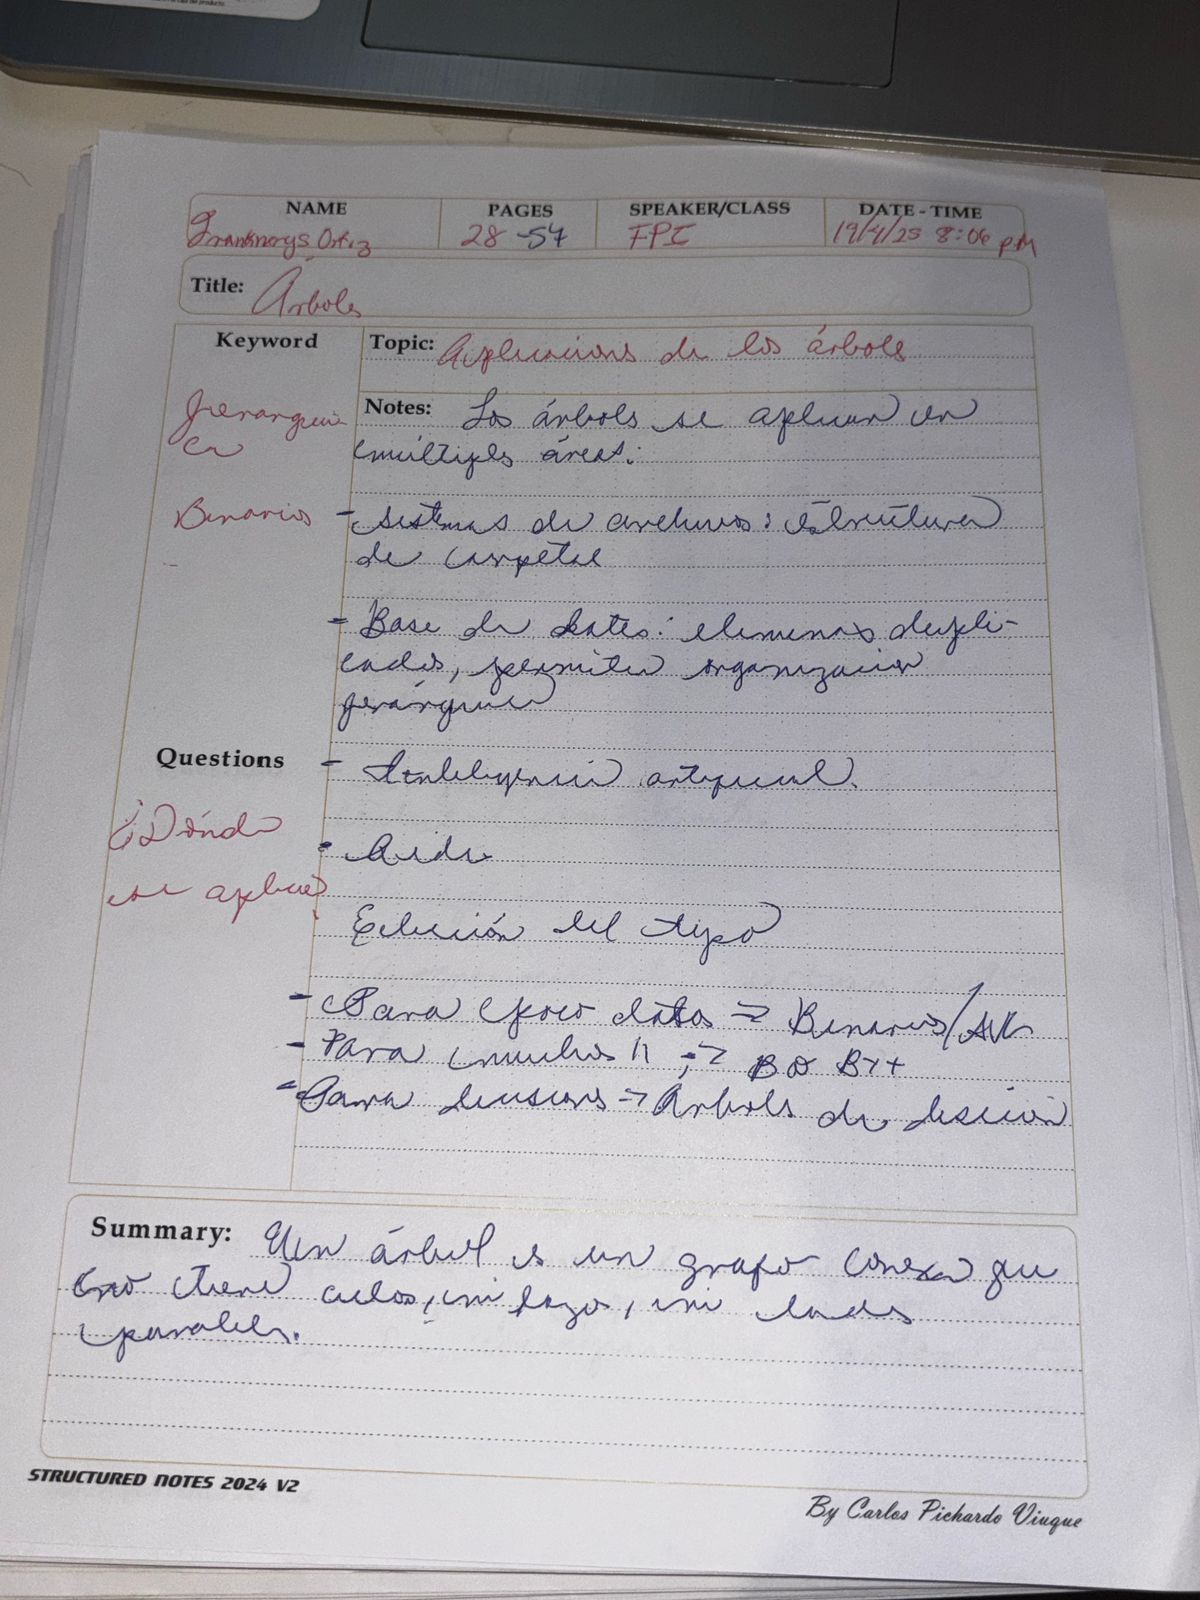 NAME PAGES SPEAKER/CLASS DATE - TIME
Franknorys Ortiz 28 -54 FPI 19/4/25 8:06 PM
Title: Árboles
Keyword Topic: Aplicacions de los árbols
Jerarqui
ca
Notes: Los árbols se aplican en
múltiples áreas:
Binarios
- Sistemas de archivos: estructura
de carpetas
- Base de datos: elemenos dupli-
cados, permiten organizacion
jerárquica
Questions
- Inteligencia artificial.
¿Dónde
se aplica?
- Redes
Eelección del tipo
- Para poco datos => Binarios/AVL
- Para muchos 11 => B o B++
- Para decisions -> Árbols de desición
Summary: Un árbol es un grafo conexo que
no tiene ciclos, ni lazos, ni lados
paralels.
STRUCTURED NOTES 2024 V2
By Carlos Pichardo Viuque